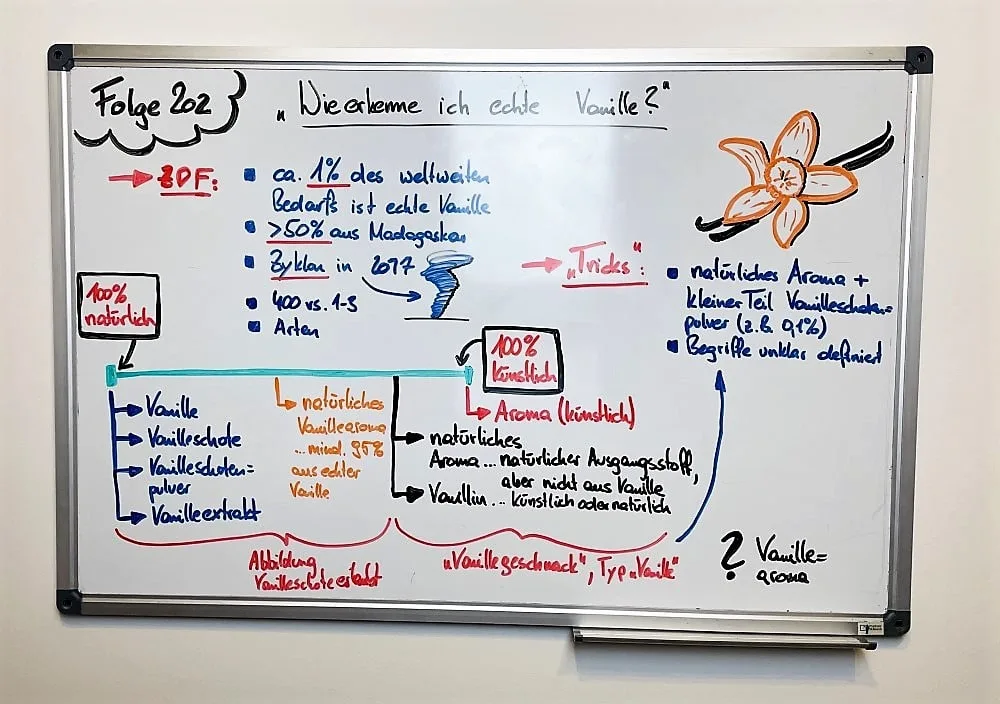 Folge 202
"Wie erkenne ich echte Vanille?"
ZDF:
ca. 1% des weltweiten
Bedarfs ist echte Vanille
>50% aus Madagaskar
Zyklon in 2017
400 vs. 1-3
Arten
"Tricks":
natürliches Aroma +
kleiner Teil Vanilleschoten=
pulver (z.B. 0,1%)
Begriffe unklar definiert
100%
natürlich
100%
künstlich
Vanille
Vanilleschote
Vanilleschoten=
pulver
Vanilleextrakt
natürliches
Vanillearoma
... mind. 95%
aus echter
Vanille
Aroma (künstlich)
natürliches
Aroma ... natürlicher Ausgangsstoff,
aber nicht aus Vanille
Vanillin ... künstlich oder natürlich
Abbildung
Vanilleschote erlaubt
"Vanillegeschmack", Typ "Vanille"
? Vanille=
aroma